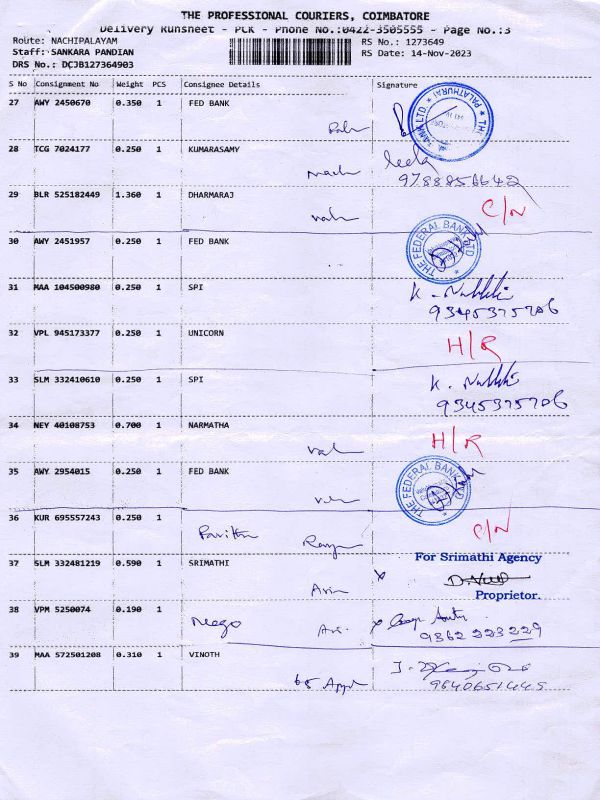 THE PROFESSIONAL COURIERS, COIMBATORE
Delivery Runsheet - PCR - Phone No.:0422-3505555 - Page No.:3
Route: NACHIPALAYAM
RS No.: 1273649
Staff: SANKARA PANDIAN
RS Date: 14-Nov-2023
DRS No.: DCJB127364903
S No Consignment No Weight PCS Consignee Details Signature
27 AWY 2450670 0.350 1 FED BANK
28 TCG 7024177 0.250 1 KUMARASAMY
9788856642
29 BLR 525182449 1.360 1 DHARMARAJ C/N
30 AWY 2451957 0.250 1 FED BANK
THE FEDERAL BANK LTD
31 MAA 104500980 0.250 1 SPI
9345375706
32 VPL 945173377 0.250 1 UNICORN H/R
33 SLM 332410610 0.250 1 SPI
9345375706
34 NEY 40108753 0.700 1 NARMATHA H/R
35 AWY 2954015 0.250 1 FED BANK
THE FEDERAL BANK
36 KUR 695557243 0.250 1 C/N
37 SLM 332481219 0.590 1 SRIMATHI
For Srimathi Agency
Proprietor.
38 VPM 5250074 0.190 1
9362 223 229
39 MAA 572501208 0.310 1 VINOTH
9840651445